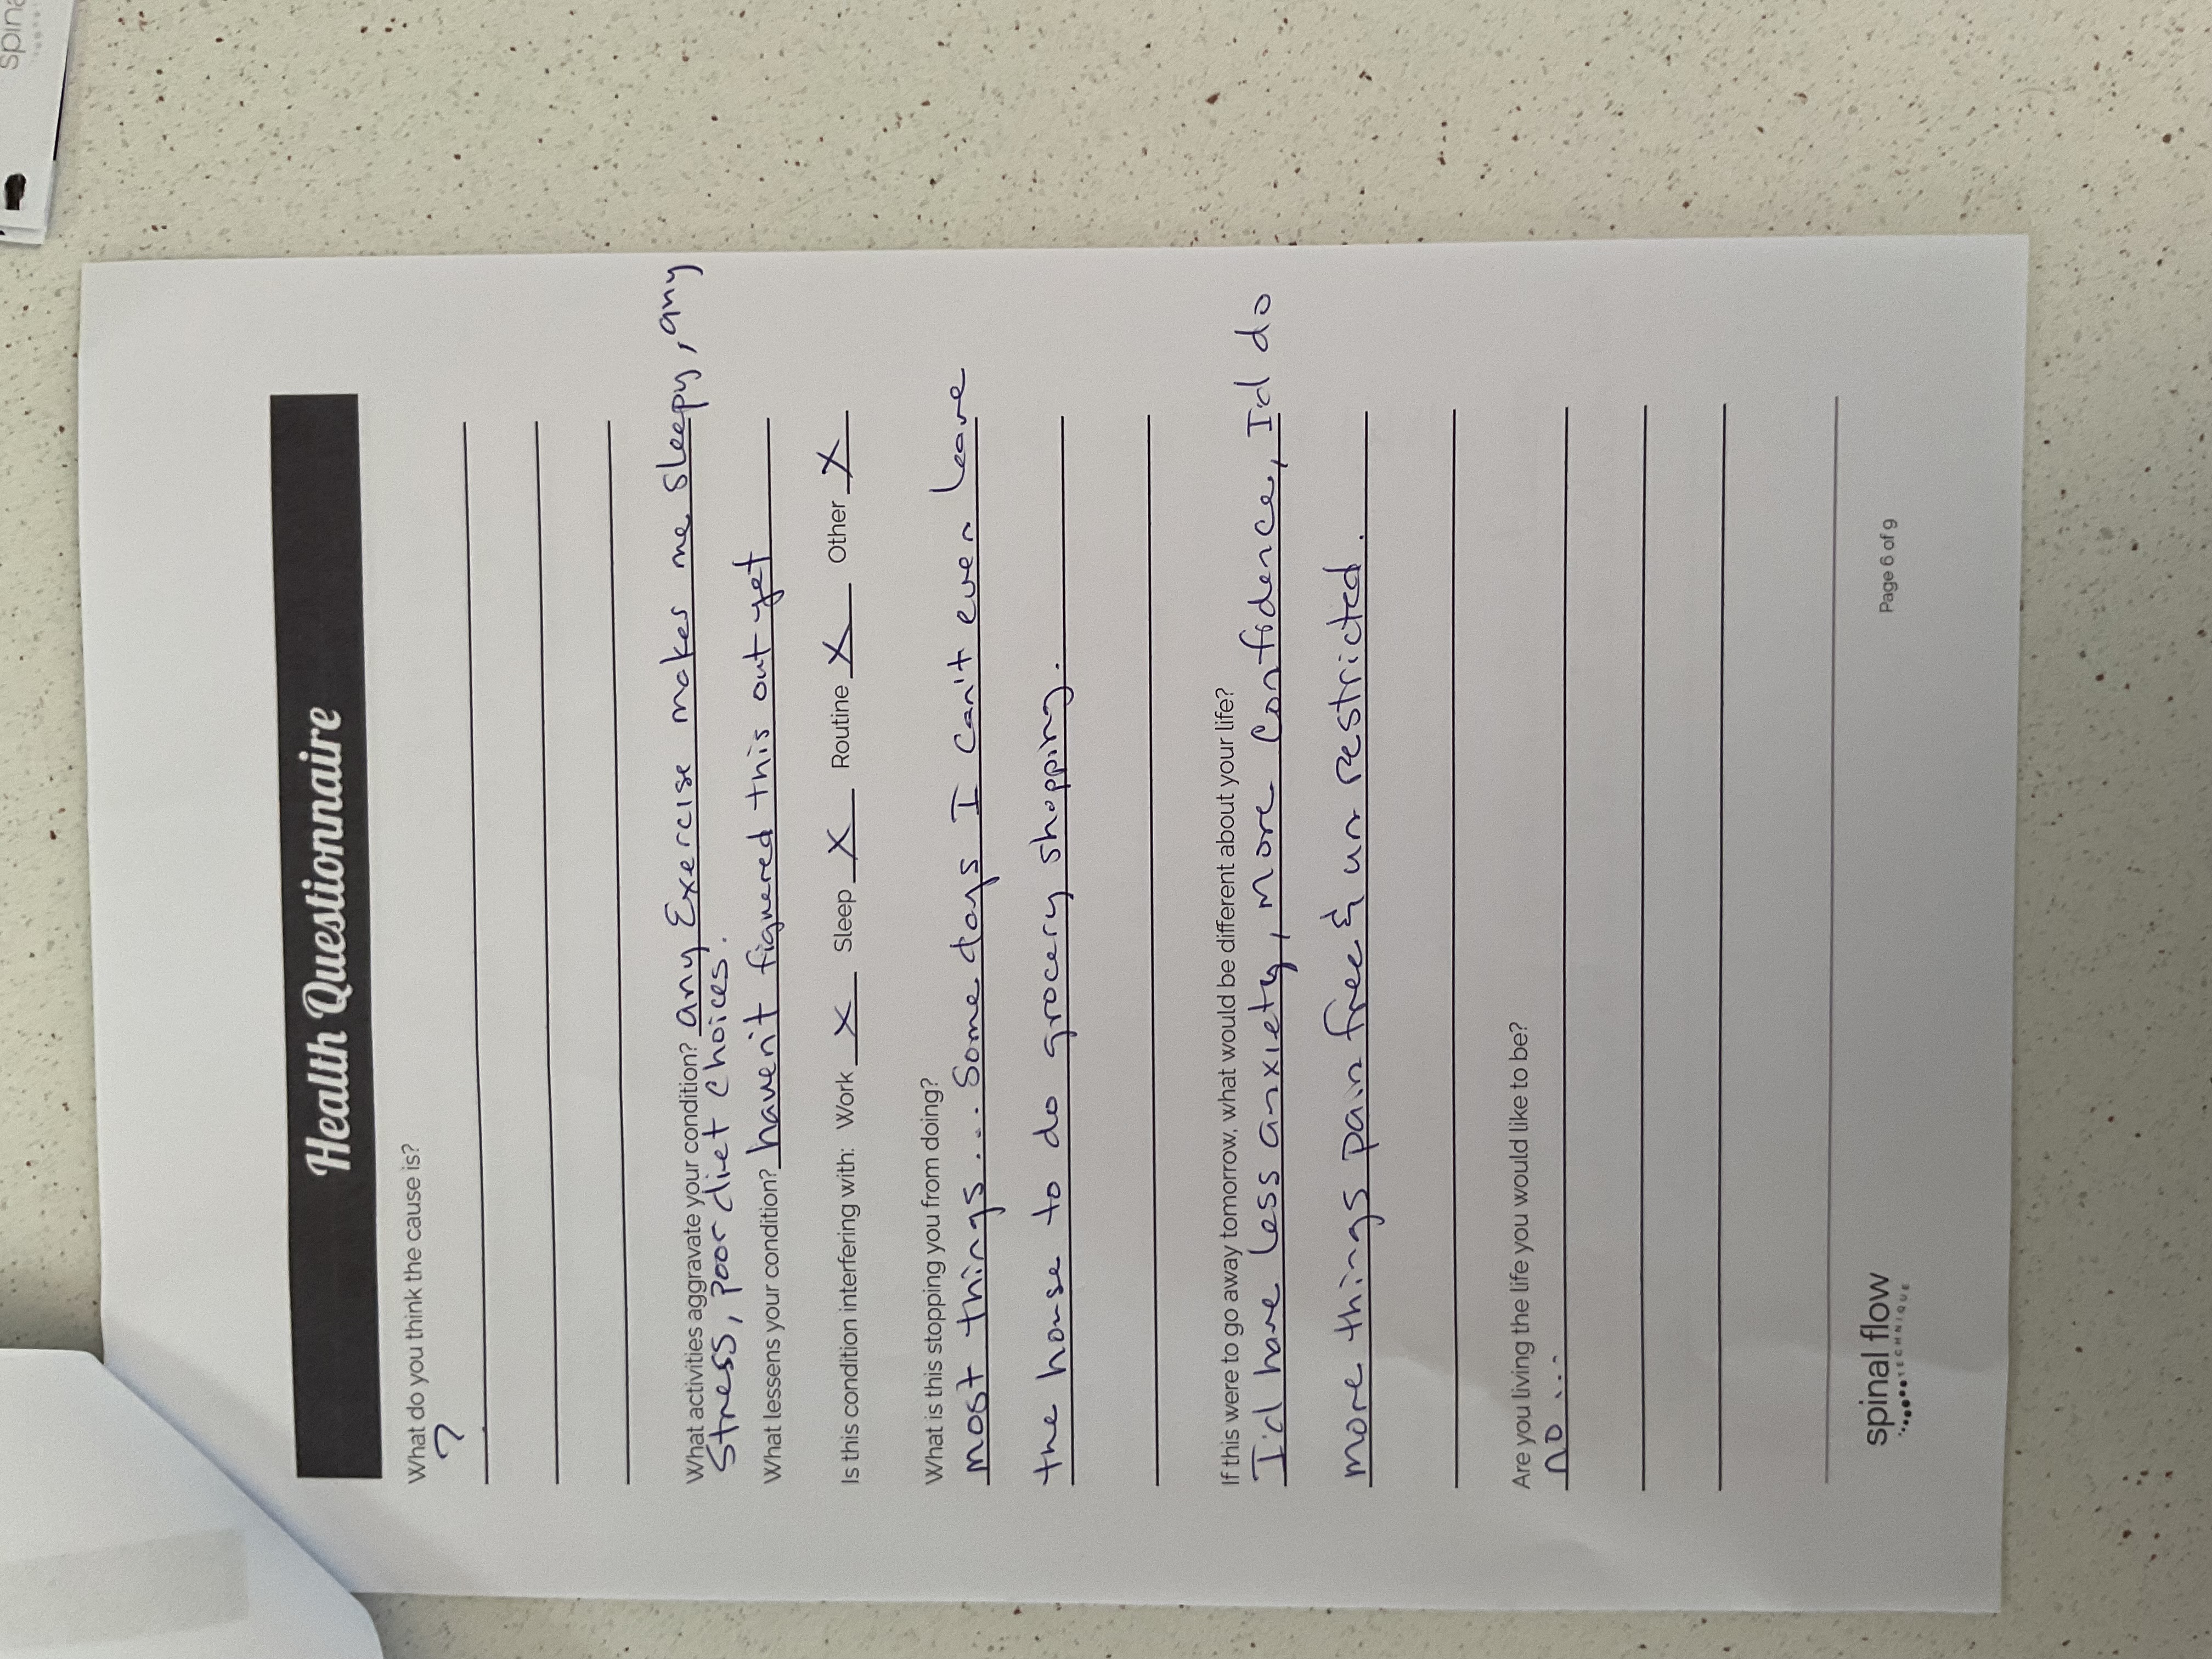 spina
Health Questionnaire
What do you think the cause is?
?
What activities aggravate your condition? any Exercise makes me sleepy, any
stress, poor diet choices.
What lessens your condition? haven't figuered this out yet
Is this condition interfering with: Work X Sleep X Routine X Other X
What is this stopping you from doing?
most things... Some days I can't even leave
the house to do grocery shopping.
If this were to go away tomorrow, what would be different about your life?
I'd have less anxiety, more confidence, I'd do
more things pain free & un restricted.
Are you living the life you would like to be?
no...
spinal flow
TECHNIQUE
Page 6 of 9